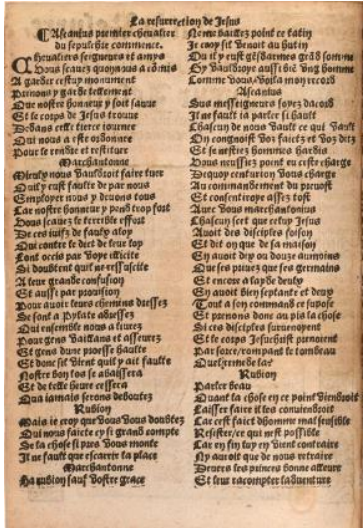 La resurrection de Jesus
Ascanius premier chevalier
du sepulchre commence.
Chevaliers seigneurs et amys
Vous scavez quon nous a cōmis
A garder cestuy monument
Prenons y garde tellement
Que nostre honneur y soit sauve
Et le corps de Jesus trouve
Dedans ceste tierce iournee
Qui nous a este ordonnee
Pour le rendre et restituer
Marchantonne
Mieulx nous vauldroit faire tuer
Quil y eust faulte de par nous
Employer nous y devons tous
Car nostre honneur y pend trop fort
Vous scavez le terrible effort
De ces iuifz de faulx aloy
Qui contre le dict de leur loy
Lont occis par voye illicite
Si doubtent quil ne ressuscite
A leur grande confusion
Et aussi par propasion
Pour avoir leurs chemins dressez
Se sont a Pylate adressez
Qui ensemble nous a livrez
Pour gens vaillans et asseurez
Et gens dune proesse haulte
Et donc sil vient quil y ait faulte
Nostre bon los se abaissera
Et de telle heure cessera
Qua iamais serons deboutez
Rubion
Mais ie croy que vous vous doubtez
Qui nous faicte cy si grand compte
De la chose si pres vous monte
Il ne fault que escarrir la place
Marchantonne
Ha rubion sauf vostre grace
Ne me baillez point ce latin
Je croy sil venoit au hutin
Ou il y eust gēsdarmes grād somme
Sy vauldroye aussi biē vng homme
Comme vous, voila mon record
Ascanius
Sus messeigneurs soyez dacord
Il ne fault ia parler si hault
Chascun de nous vault ce quil vault
On congnoist voz faictz et voz ditz
Et se nestiez hommes hardis
Vous neussiez point eu ceste charge
Dequoy centurion vous charge
Au commandement du prevost
Et consentiroye assez tost
Avec vous marchantonius
Chascun scet que celuy Jesus
Avoit des disciples foison
Et dit on que de sa maison
En avoit dix ou douze aumoins
Que ses privez que ses germains
Et encore a layde deulx
En avoit bien septante et deux
Tout a son commandement
Et prenons donc au pis la chose
Si ces disciples survenoyent
Et le corps Jesuchrist prenoient
Par force/rompant le tombeau
Quel remede la?
Rubion
Parler beau
Quant la chose en ce point viendroit
Laisser faire il les conviendroit
Car cest faict dhomme mal sensible
Resister/ce qui nest possible
Car en sin luy en vient contraire
Ny auroit que de nous retraire
Devers les princes bonne alleure
Et leur racompter ladventure